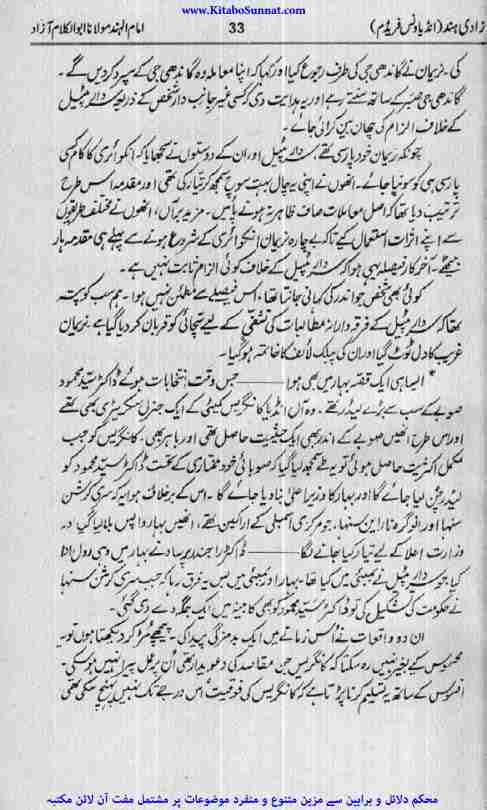 www.KitaboSunnat.com
زادی ہند (انڈیا ونس فریڈم) 33 امام الہند مولانا ابوالکلام آزاد
کی۔ نریمان نے گاندھی جی کی طرف رجوع کیا اور کہا کہ اپنا معاملہ وہ گاندھی جی کے سپرد کر دیں گے۔
گاندھی جی صبر کے ساتھ سنتے رہے اور یہ ہدایت دی کسی غیر جانب دار شخص کے ذریعہ سردار پٹیل
کے خلاف الزام کی چھان بین کرائی جائے۔
چونکہ نریمان خود پارسی تھے، سردار پٹیل اور ان کے دوستوں نے سجھایا کہ انکوائری کا کام کسی
پارسی ہی کو سونپا جائے۔ انھوں نے اپنی یہ چال بہت سوچ سمجھ کر تیار کی تھی اور مقدمہ اس طرح
ترتیب دیا تھا کہ اصل معاملات صاف ظاہر نہ ہونے پائیں۔ مزید برآں، انھوں نے مختلف طریقوں
سے اپنے اثرات استعمال کیے تاکہ بے چارہ نریمان انکوائری کے شروع ہونے سے پہلے ہی مقدمہ ہار
بیٹھے۔ آخر کار فیصلہ یہی ہوا کہ سردار پٹیل کے خلاف کوئی الزام ثابت نہیں ہے۔
کوئی بھی شخص جو اندر کی کہانی جانتا تھا، اس فیصلے سے مطمئن نہیں ہوا۔ ہم سب کو پتہ
تھا کہ سردار پٹیل کے فرقہ وارانہ مطالبات کی تشفی کے لیے سچائی کو قربان کر دیا گیا ہے۔ نریمان
غریب کا دل ٹوٹ گیا اور ان کی پبلک لائف کا خاتمہ ہو گیا۔
* ایسا ہی ایک قصہ بہار میں بھی ہوا ——— جس وقت انتخابات ہوئے ڈاکٹر سید محمود
صوبے کے سب سے بڑے لیڈر تھے۔ وہ آل انڈیا کانگریس کمیٹی کے ایک جنرل سکریٹری بھی تھے
اور اس طرح انھیں صوبے کے اندر بھی ایک حیثیت حاصل تھی اور باہر بھی۔ کانگریس کو جب
مکمل اکثریت حاصل ہوئی تو یہ طے سمجھ لیا گیا کہ صوبائی خود مختاری کے تحت ڈاکٹر سید محمود کو
لیڈر چن لیا جائے گا اور بہار کا وزیر اعلیٰ بنا دیا جائے گا۔ اس کے برخلاف ہوا یہ کہ سری کرشن
سنہا اور انوگرہ نارائن سنہا، جو مرکزی اسمبلی کے اراکین تھے، انھیں بہار واپس بلا لیا گیا اور
وزارت اعلا کے لیے تیار کیا جانے لگا ——— ڈاکٹر راجندر پرساد نے بہار میں وہی رول ادا
کیا جو سردار پٹیل نے بمبئی میں کیا تھا۔ بہار اور بمبئی میں بس یہ فرق رہا کہ جب سری کرشن سنہا
نے حکومت کی تشکیل کی تو ڈاکٹر سید محمود کو بھی کابینہ میں ایک جگہ دے دی گئی۔
ان دو واقعات نے اس زمانے میں ایک بدمزگی پیدا کی۔ پیچھے مڑ کر دیکھتا ہوں تو یہ
محسوس کیے بغیر نہیں رہ سکتا کہ کانگریس جن مقاصد کی دعویدار تھی اُن پر عمل پیرا نہیں ہو سکی۔
افسوس کے ساتھ یہ تسلیم کرنا پڑتا ہے کہ کانگریس کی قومیت اس درجے تک نہیں پہنچ سکی تھی
محکم دلائل و براہین سے مزین متنوع و منفرد موضوعات پر مشتمل مفت آن لائن مکتبہ